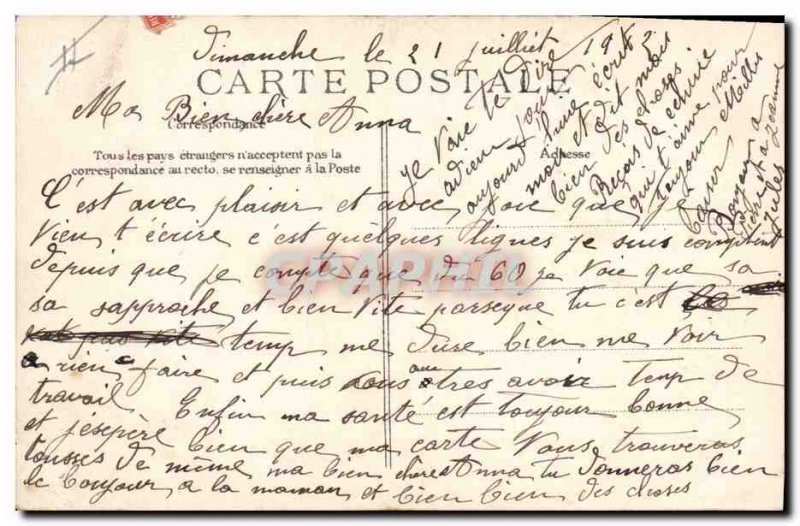 Dimanche le 21 juilliet 19
CARTE POSTALE
Ma Bien chère Anna
Correspondance
Adresse
Tous les pays étrangers n'acceptent pas la
correspondance au recto. se renseigner à la Poste
C'est avec plaisir et avec joie que je
vien t écrire c'est quelques lignes je suis content
depuis que je compte que du 60 je voie que sa
sa sapproche et bien vite parseque tu c'est
temp me dure bien me voir
a rien faire et puis vous otres avoir temp de
travail Enfin ma santé est toujour bonne
et j'éspère bien que ma carte vous trouveras
toussés de même ma bien chère Anna tu donneras bien
le bonjour a la maman et bien bien des choses
je voie te dire
adieu pour
aujourd'hui écrit
moi et dit mois
bien des chosé
Reçois de
qui t aime pour
toujour Meilles
baiser
Bonjour a
a Jeanne
Jules
CPAPHIL